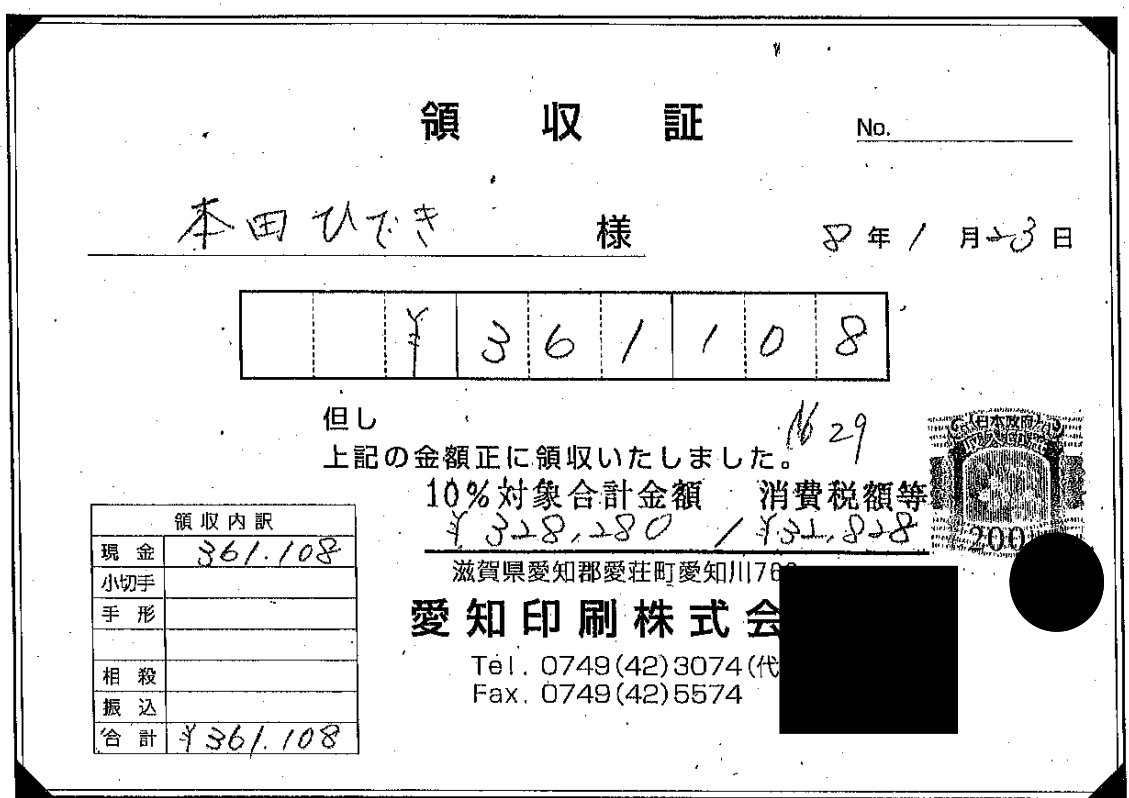 領収証
No.
本田ひでき 様
8年1月23日
¥361108
但し
上記の金額正に領収いたしました。
No 29
10%対象合計金額 消費税額等
¥328,280 / ¥32,828
日本政府
200
領収内訳
現金 361.108
小切手
手形
相殺
振込
合計 ¥361.108
滋賀県愛知郡愛荘町愛知川76
愛知印刷株式会
Tel. 0749(42)3074(代
Fax. 0749(42)5574